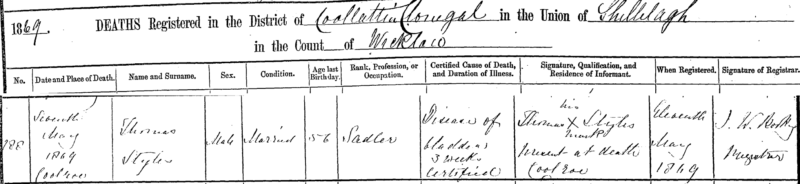 1869. DEATHS Registered in the District of Coollattin Clonegal in the Union of Shillelagh
in the Count of Wicklow
No. Date and Place of Death. Name and Surname. Sex. Condition. Age last Birthday. Rank, Profession, or Occupation. Certified Cause of Death, and Duration of Illness. Signature, Qualification, and Residence of Informant. When Registered. Signature of Registrar.
Seventh
May
1869
Coolroe
Thomas
Styles
Male
Married
56
Sadler
Disease of
bladder
3 weeks
Certified
his
Thomas X Styles
mark
present at death
Coolroe
Eleventh
May
1869
J. W.
Registrar